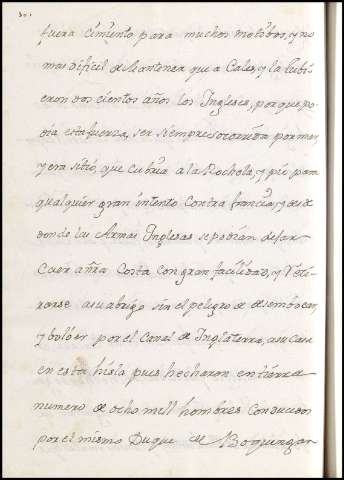 fuera cimiento para muchos motibos, y no
mas dificil de Mantener que a Cales, y la tubi
eron dos cientos años los Ingleses, porque po
dia esta fuerza, ser siempre socorrida por mar,
y era sitio, que cubria a la Rochela, y pié para
qualquier gran intento contra francia, y desde
donde las Armas Inglesas se podian dejar
Caer a ñra Costa con gran facilidad, y Reti
rarse a su abrigo sin el peligro de desembocar,
y bolber por el Canal de Inglaterra, a su Casa
en esta Hisla pues hecharon en tierra
numero de ocho mill hombres Conducidos
por el mismo Duque de Boquingan